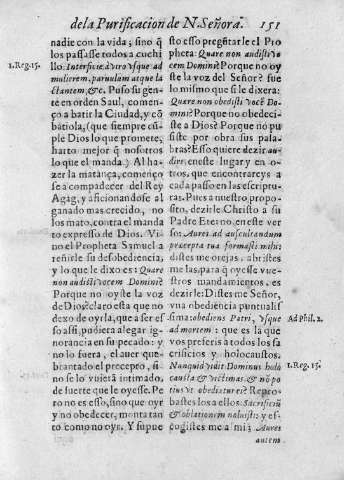 de la Purificacion de N. Señora. 151
nadie con la vida; sino q̃
los passasse todos a cuchi
1.Reg.15.
llo. Interfice à viro vsque ad
mulierem, paruulum atque la
ctantem, &c. Puso su gen
te en orden Saul, començò
a batir la Ciudad, y cõ
batiola, (que siempre cũ-
ple Dios lo que promete,
harto mejor q̃ nosotros
lo que el manda.) Al ha-
zer la matança, començò
se a compadecer del Rey
Agag, y aficionandose al
ganado mas crecido, no
los mato, contra el manda
to expresso de Dios. Vi-
no el Propheta Samuel a
reñirle su desobediencia,
y lo que le dixo es: Quare
non audisti vocem Domini?
Porque no oyste la voz
de Dios? claro esta que no
dexo de oyrla, que a ser es
so assi, pudiera alegar ig-
norancia en su pecado: y
no lo fuera, el auer que-
brantado el precepto, si
no se lo vuiera intimado,
de suerte que le oyesse. Pe
ro no es esso, sino que oyr
y no obedecer, monta tan
to como no oyr. Y supue
sto esso pregũtarle el Pro
pheta: Quare non audisti vo
cem Domini? Porque no oy
ste la voz del Señor? fue
lo mismo que si le dixera:
Quare non obedisti vocẽ Do-
mini? Porque no obedeci-
ste a Dios? Porque no pu
siste por obra sus pala-
bras? Esso quiere dezir au-
dire, en este lugar y en o-
tros, que encontrareys a
cada passo en las escriptu-
ras. Pues a nuestro propo-
sito, dezirle Christo a su
Padre Eterno, en este ver-
so: Aures ad auscultandum
præcepta tua formasti mihi:
distes me orejas, abristes
me las, para q̃ oyesse vue-
stros mandamientos, es
dezirle: Distes me Señor,
vna obediencia puntualis
sima: obediens Patri, vsque
Ad Phil.2.
ad mortem: que es la que
vos preferis a todos los sa
crificios y holocaustos.
1.Reg.15.
Nunquid vult Dominus holo
causta & victimas & nõ po
tius vt obediatur? Repro-
bastes los a ellos: Sacrificiũ
& oblationem noluisti: y es-
cogistes me a mi: Aures
autem